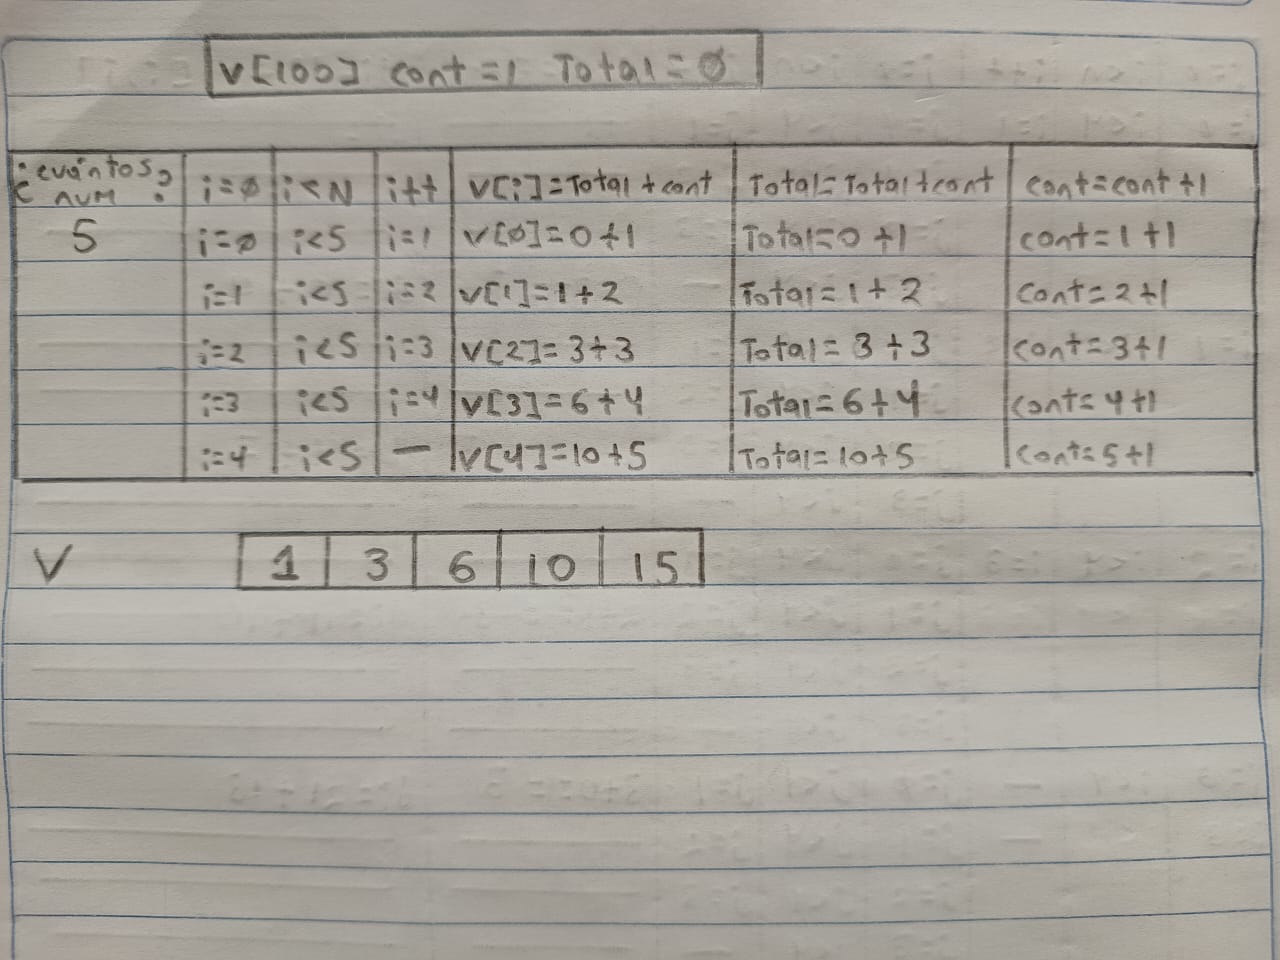 V[100] cont=1 Total=0
¿cuántos num? i=0 i<N i++ V[i]=Total+cont Total=Total+cont cont=cont+1
5 i=0 i<5 i=1 V[0]=0+1 Total=0+1 cont=1+1
i=1 i<5 i=2 V[1]=1+2 Total=1+2 cont=2+1
i=2 i<5 i=3 V[2]=3+3 Total=3+3 cont=3+1
i=3 i<5 i=4 V[3]=6+4 Total=6+4 cont=4+1
i=4 i<5 — V[4]=10+5 Total=10+5 cont=5+1
V 1 3 6 10 15